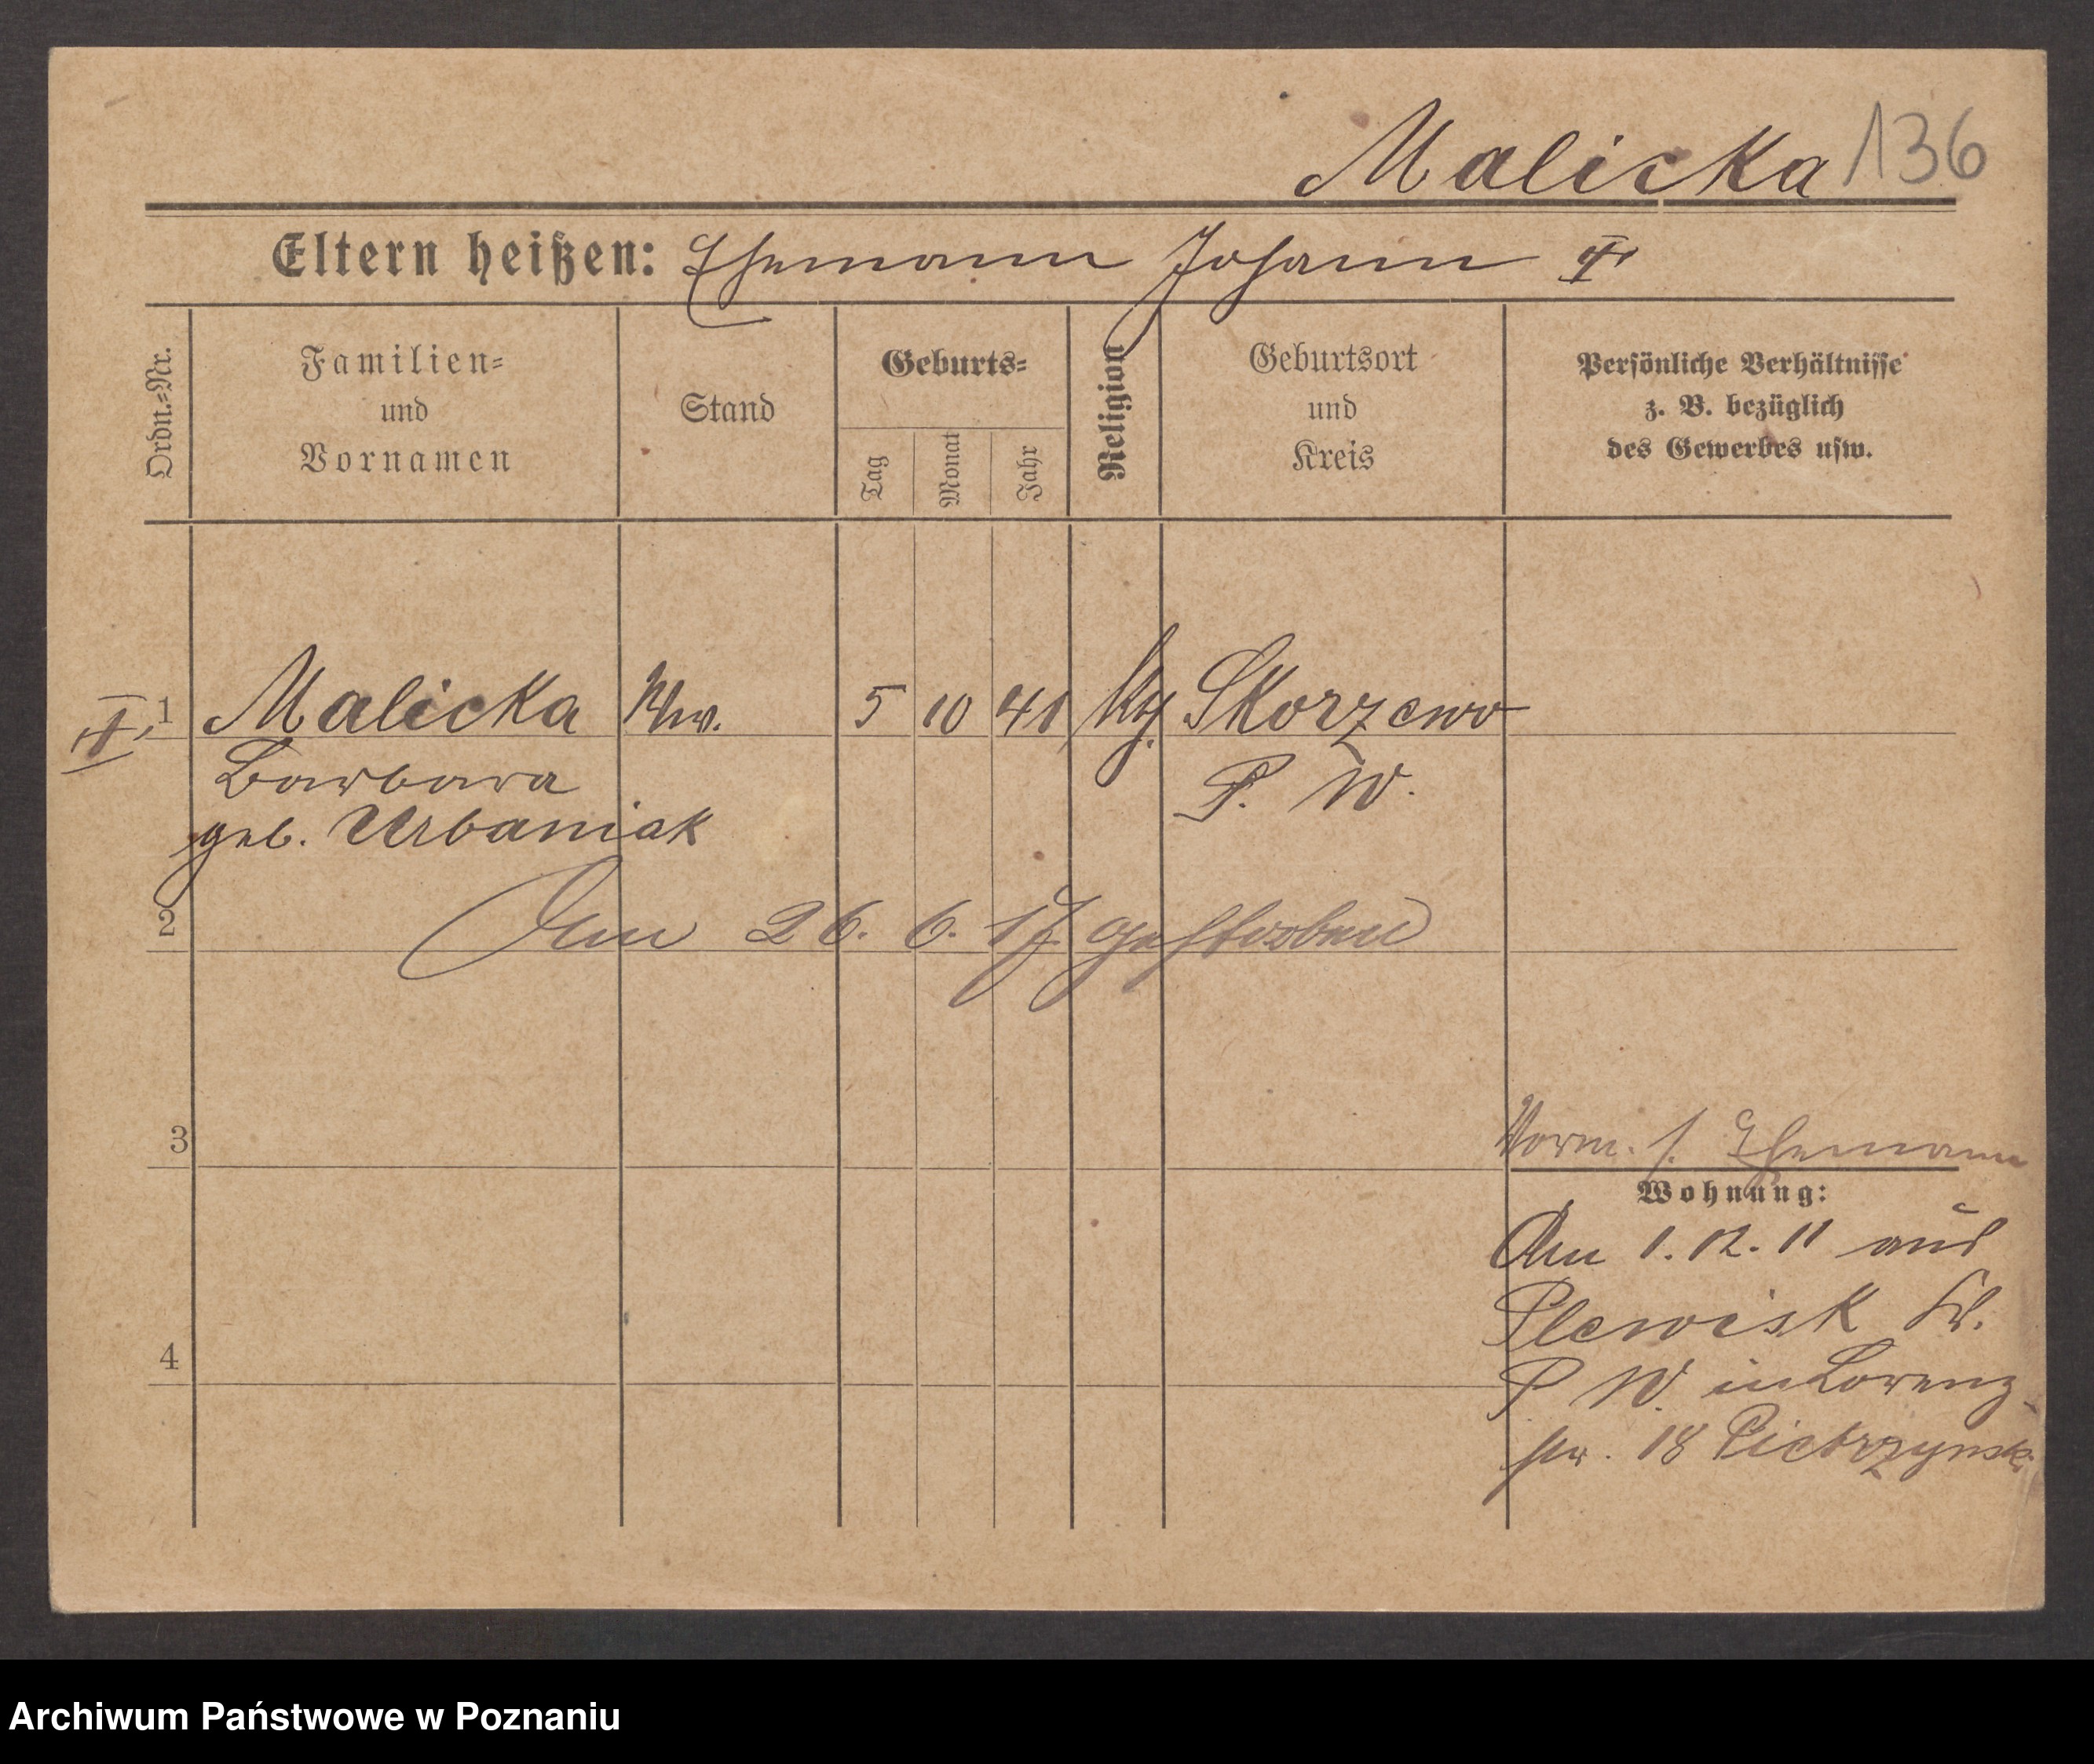 Malicka 136
Eltern heißen: Ehemann Johann II
Ordn.-Nr.
Familien-
und
Vornamen
Stand
Geburts-
Tag
Monat
Jahr
Religion
Geburtsort
und
Kreis
Persönliche Verhältnisse
z. B. bezüglich
des Gewerbes usw.
1 Malicka Ww. 5 10 41 Skorzewo
Barbara P. W.
geb. Urbaniak
2 Am 26. 6. 17 gestorben
3
Vorm. s. Ehemann
Wohnung:
Am 1. 12. 11 aus
Plewisk Kr.
4
P W. in Lorenz-
str. 18 Pietrzynski
Archiwum Państwowe w Poznaniu